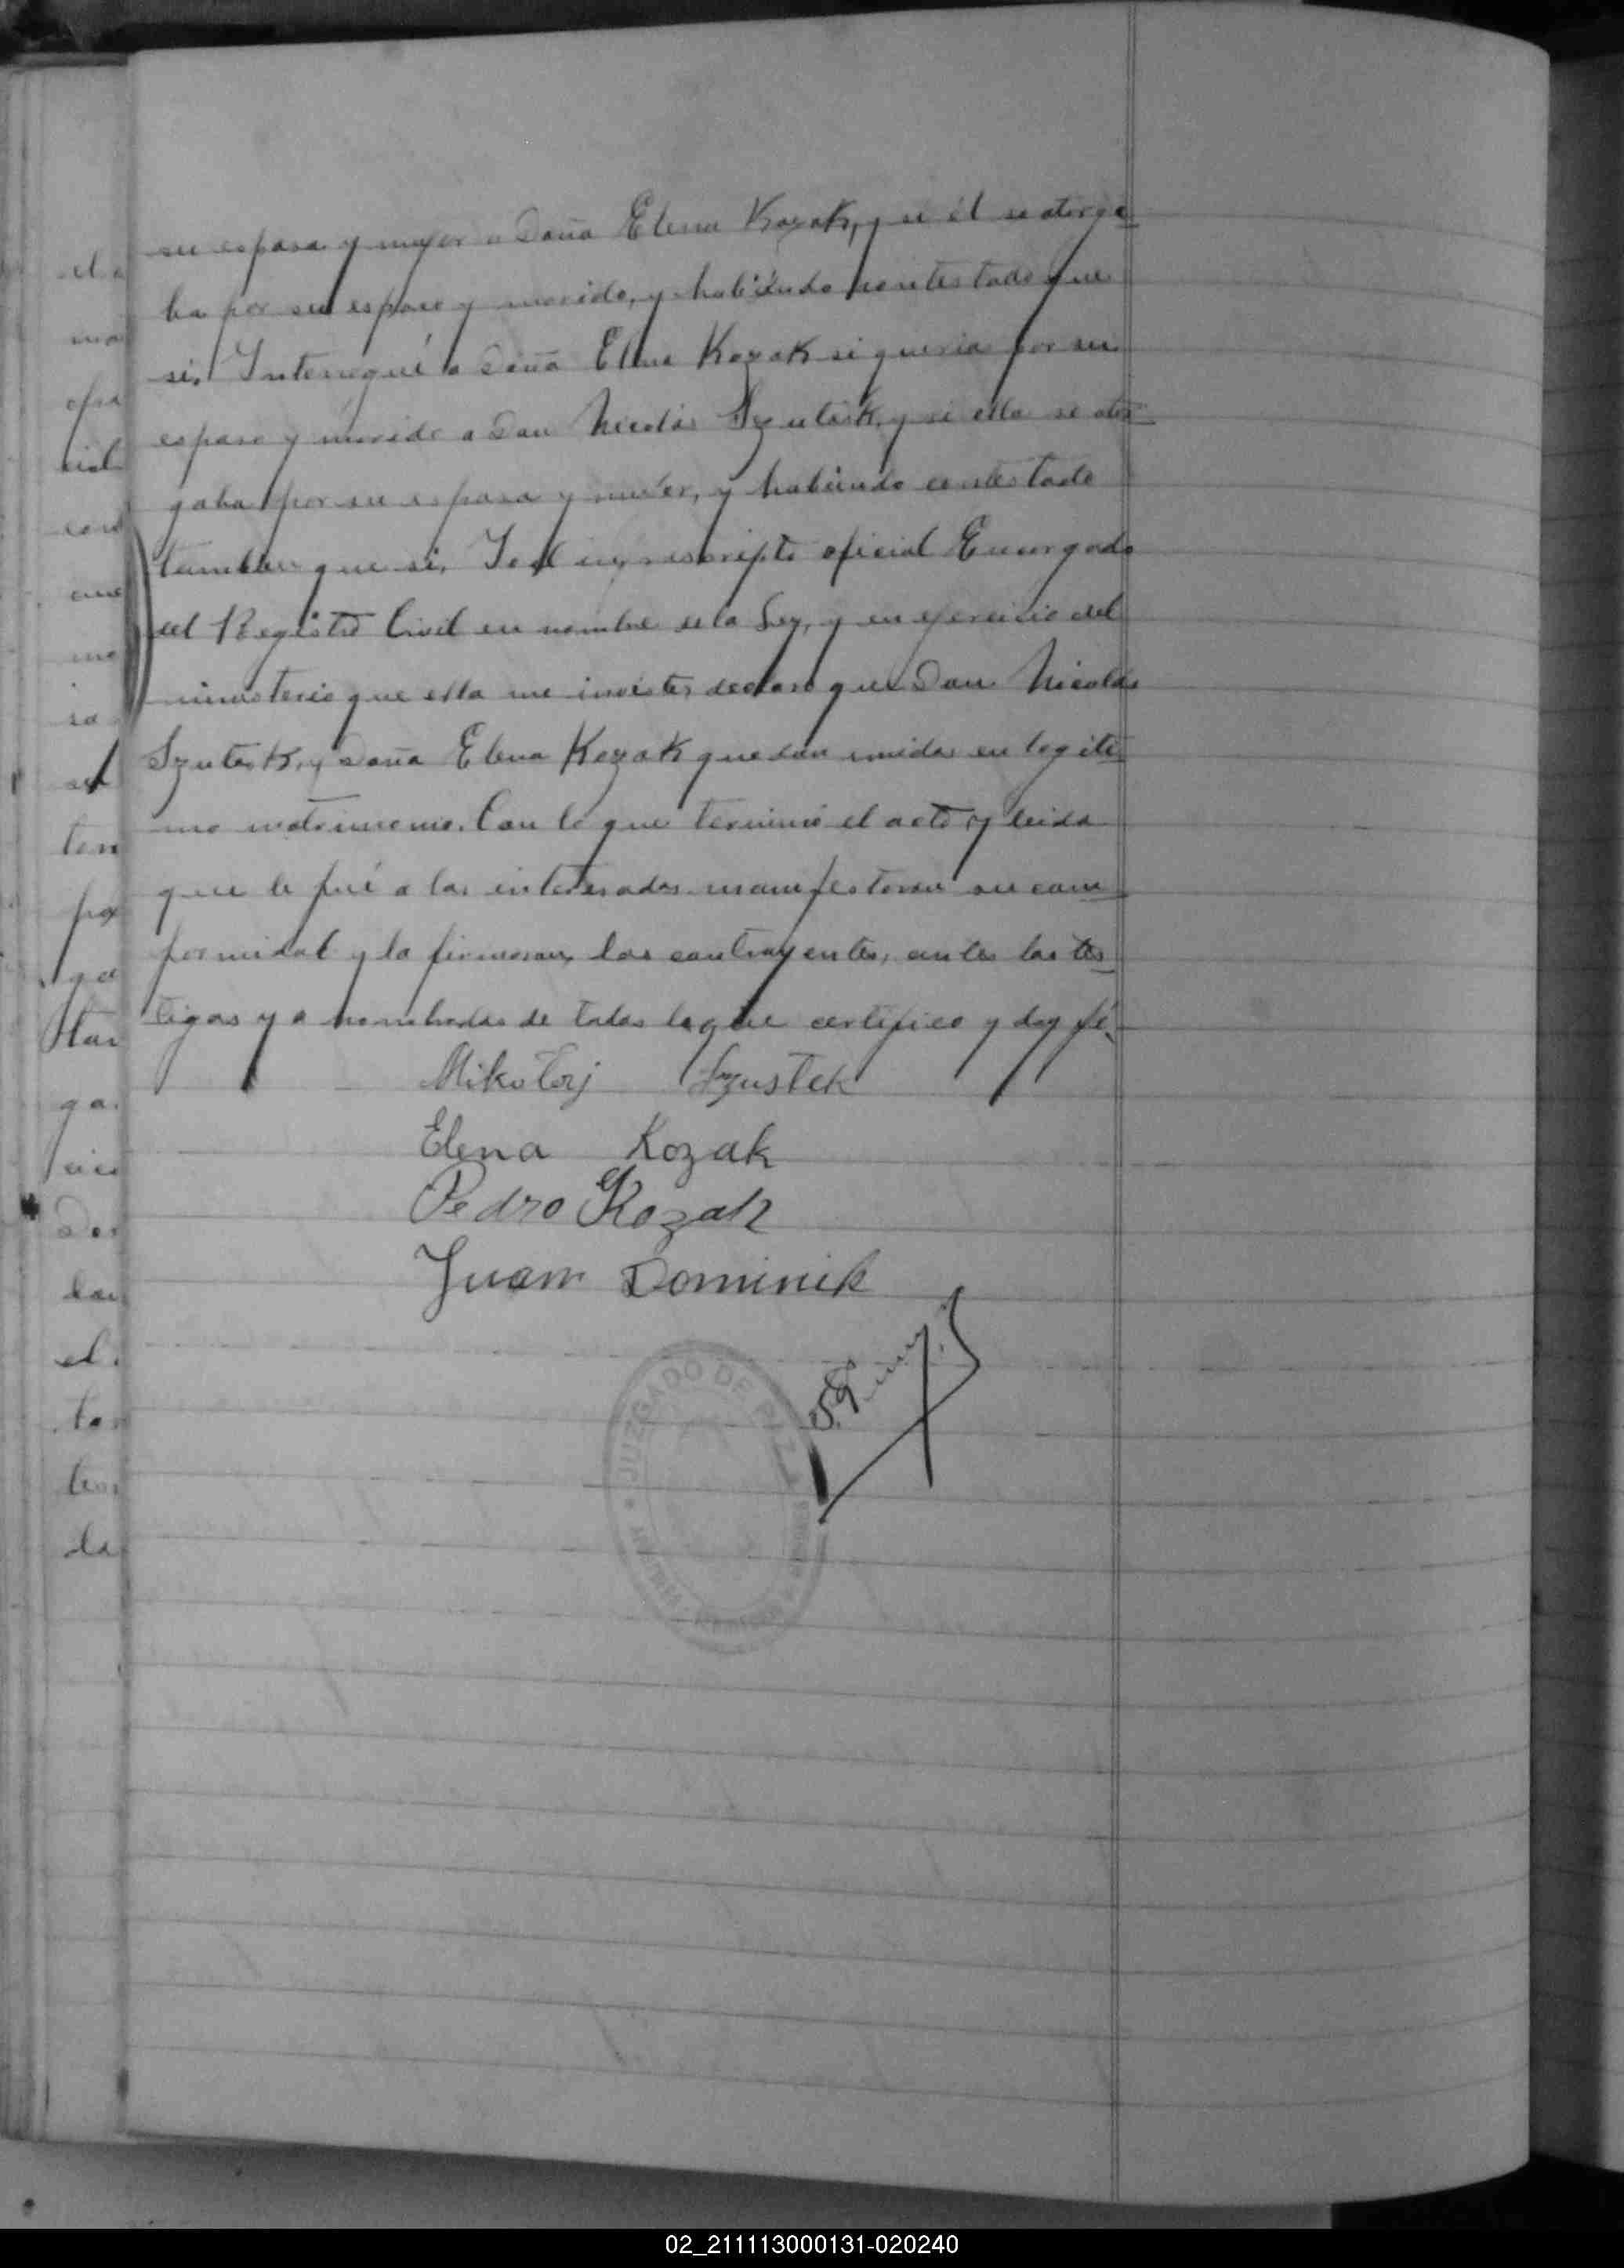 su esposa y mujer a Doña Elena Kozak, y si él se otorga
ba por su esposo y marido, y habiendo contestado que
si. Interrogué a Doña Elena Kozak si queria por su
esposo y marido a Don Nicolás Szutask, y si ella se otor
gaba por su esposa y mujer, y habiendo contestado
tambien que si, Yo el infrascripto oficial Encargado
del Registro Civil en nombre de la Ley, y en ejercicio del
ministerio que ella me inviste, declaro que Don Nicolás
Szutask, y Doña Elena Kozak quedan unidos en legiti
mo matrimonio. Con lo que terminó el acto, y leida
que le fué a los interesados manifestaron su con
formidad y la firmaron, los contrayentes, antes los tes
tigos y a nombrados de todos lo que certifico y doy fé.
Mikołaj Szustek
Elena Kozak
Pedro Kozak
Juan Dominik
JUZGADO DE PAZ
el
ma
ofra
cial
con
ra
ton
por
ga
tan
ga
Don
lan
el
ton
la
02_211113000131-020240